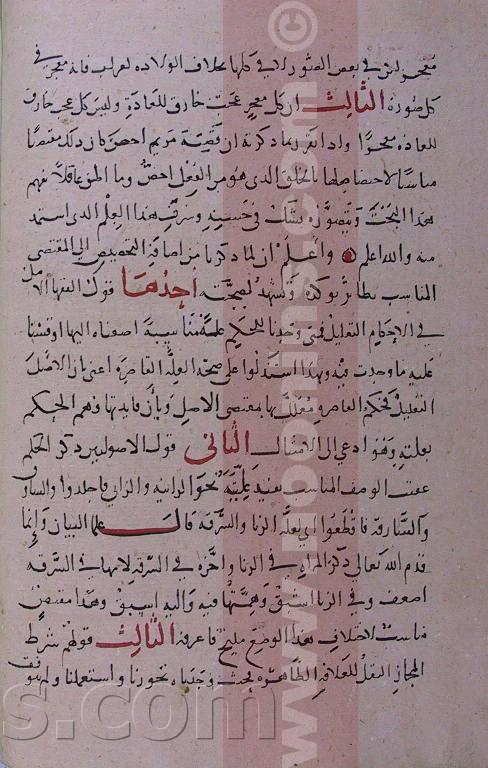 معجز ليس في بعض الصور لا في كلها بخلاف الولادة لغير اب فانه معجز في
كل صورة الثالث ان كل معجز عجب خارق للعادة وليس كل عجب خارق
للعادة معجزا واذا تقرر ما ذكرته ان قضية مريم احص كان ذلك مقتضيا
مناسبا لاختصاصها بالخلق الذي هو من الفعل احص وما المؤ عاقلا فهم
هذا البحث وتصوره يشك في حسنه وشرف هذا العلم الذي استمد
منه والله اعلم واعلم ان لما ذكرنا من اضافة التخصيص الى المقتضى
المناسب نظائر توكده وتشهد لصحته احدها قول الفقهاء الاصل
في الاحكام التعليل فمتى وجدنا للحكم علة مناسبة اضفناه اليها وقسنا
عليه ما وجدت فيه وبهذا استدلوا على صحة العلة القاصرة اعني بان الاصل
التعليل فحكم القاصرة معلل بها بمقتضى الاصل وبأن فايدتها فهم الحكم
بعلته وهو ادعى الى الامتثال الثاني قول الاصوليين ذكر الحكم
عقيب الوصف المناسب يفيد عليته نحو الزانية والزاني فاجلدوا والسارق
والسارقة فاقطعوا اي لعلة الزنا والسرقة قال علما البيان وانما
قدم الله تعالى ذكر المراة في الزنا واخره في السرقة لانها في السرقة
اضعف وفي الزنا اسبق وهمتها فيه واليه اسبق وهذا مقتض
مناسب لاختلاف هذا الوضع مليح فاعرفه الثالث قولهم شرط
المجاز النقل للعلاقة الظاهرة بحث وجدناه نحو زنا واستعملنا ولم يتوقف